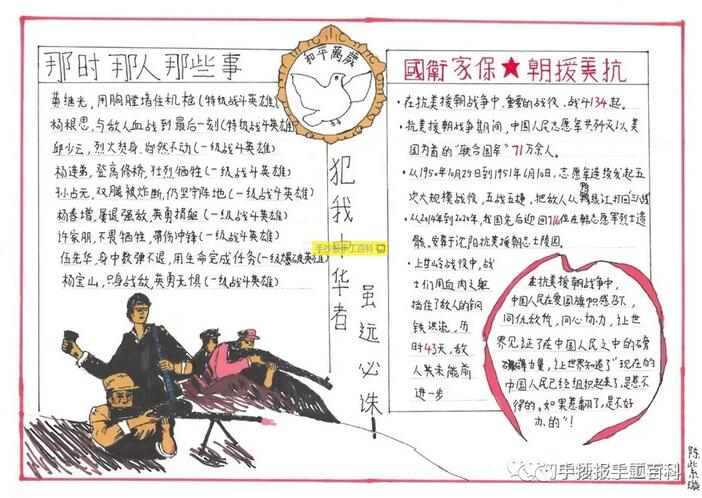 那时那人那些事
黄继光,用胸膛堵住机枪(特级战斗英雄)
杨根思,与敌人血战到最后一刻(特级战斗英雄)
邱少云,烈火焚身,岿然不动(一级战斗英雄)
杨连弟,登高修桥,壮烈牺牲(一级战斗英雄)
孙占元,双腿被炸断,仍坚守阵地(一级战斗英雄)
杨春增,屡退强敌,英勇捐躯(一级战斗英雄)
许家朋,不畏牺牲,带伤冲锋(一级战斗英雄)
伍先华,身中数弹不退,用生命完成任务(一级爆破英雄)
杨宝山,只身战敌,英勇无惧(一级战斗英雄)
和平萬歲
犯我中华者
虽远必诛!
手抄报手工百科
國衛家保★朝援美抗
·在抗美援朝战争中,重要的战役、战斗134起。
·抗美援朝战争期间,中国人民志愿军共歼灭以美
国为首的"联合国军"71万余人。
·从1950年10月25日到1951年6月10日,志愿军连续发起五
次大规模战役,五战五捷,把敌人从
·从2014年到2020年,我国先后迎回716位在韩志愿军烈士遗
骸,安葬于沈阳抗美援朝志士陵园。
·上甘岭战役中,战
士们用血肉之躯
挡住了敌人的钢
铁洪流,历
时43天,敌
人未能前
进一步
在抗美援朝战争中,
中国人民在爱国旗帜感召下,
同仇敌忾,同心协力,让世
界见证了在中国人民之中的磅
礴力量,让世界知道了"现在的
中国人民已经组织起来了,是惹不
得的。如果惹翻了,是不好
办的"!
手抄报手工百科